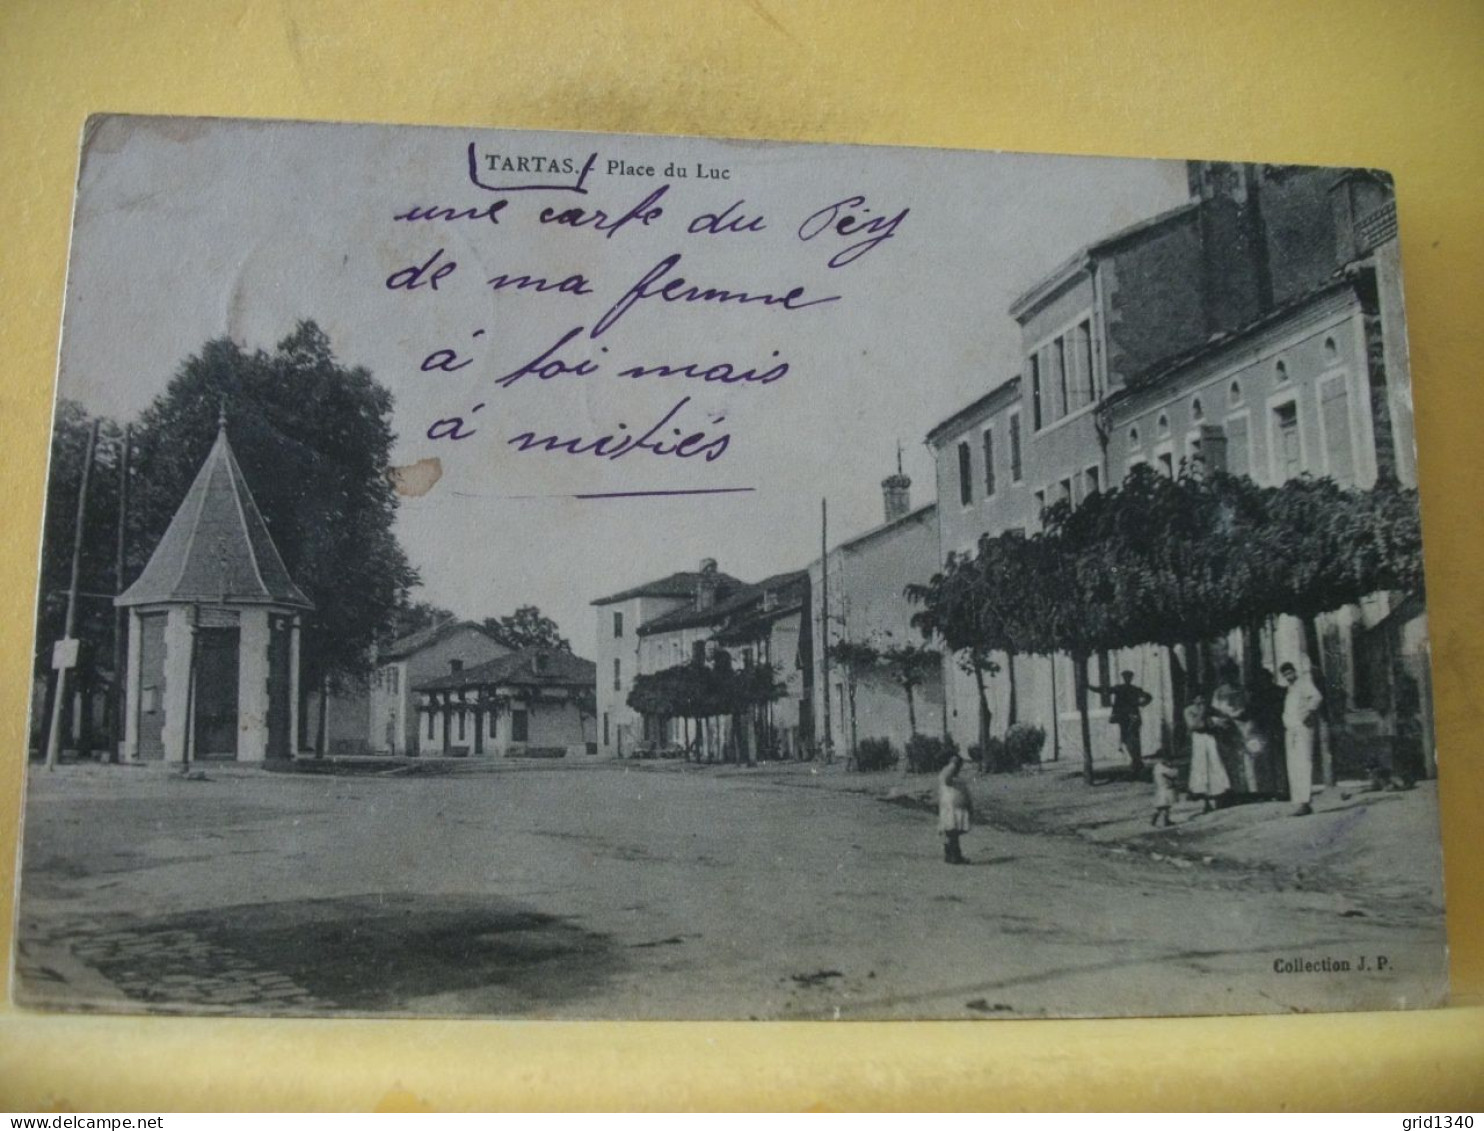 TARTAS. - Place du Luc
une carte du Péy
de ma femme
à toi mais
à mistiés
Collection J. P.
grid1340